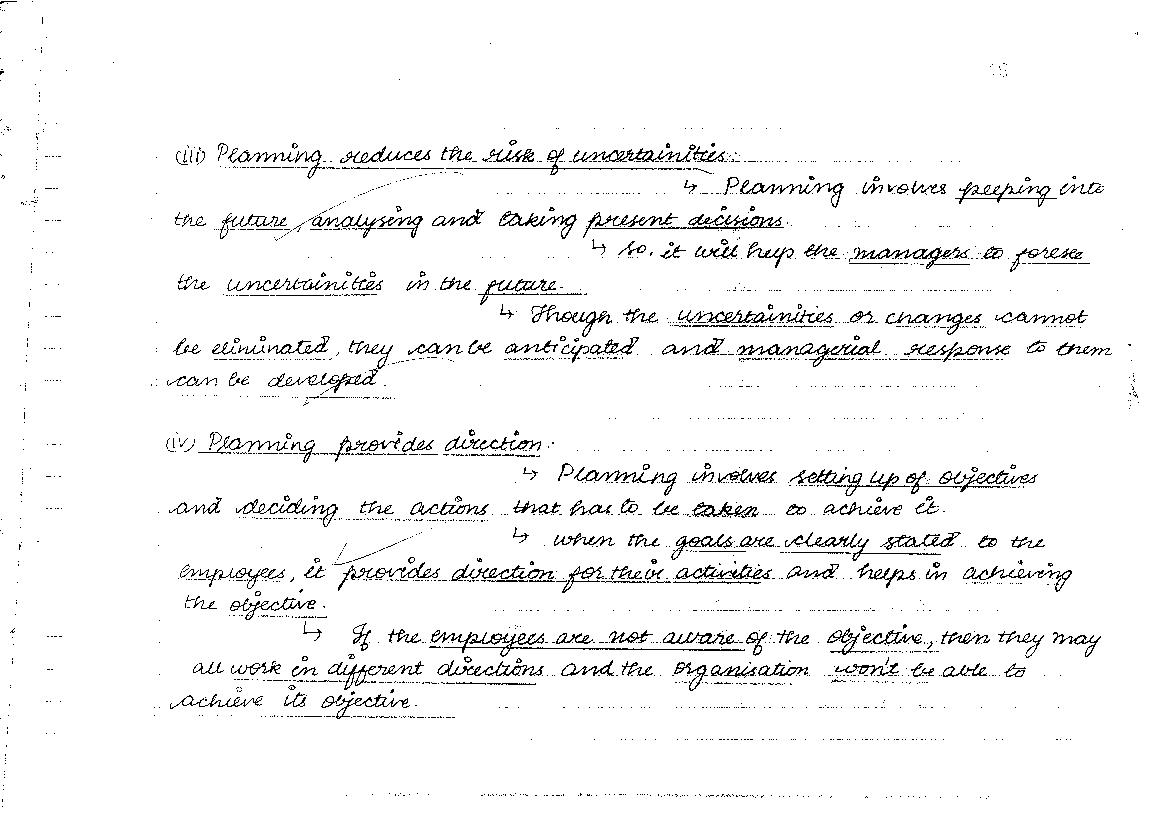 (iii) Planning reduces the risk of uncertainities:
↳ Planning involves peeping into
the future, analysing and taking present decisions.
↳ So, it will help the managers to foresee
the uncertainities in the future.
↳ Though the uncertainities or changes cannot
be eliminated, they can be anticipated and managerial response to them
can be developed.
(iv) Planning provides direction:
↳ Planning involves setting up of objectives
and deciding the actions that has to be taken to achieve it.
↳ when the goals are clearly stated to the
employees, it provides direction for their activities and helps in achieving
the objective.
↳ If the employees are not aware of the objective, then they may
all work in different directions and the organisation won't be able to
achieve its objective.